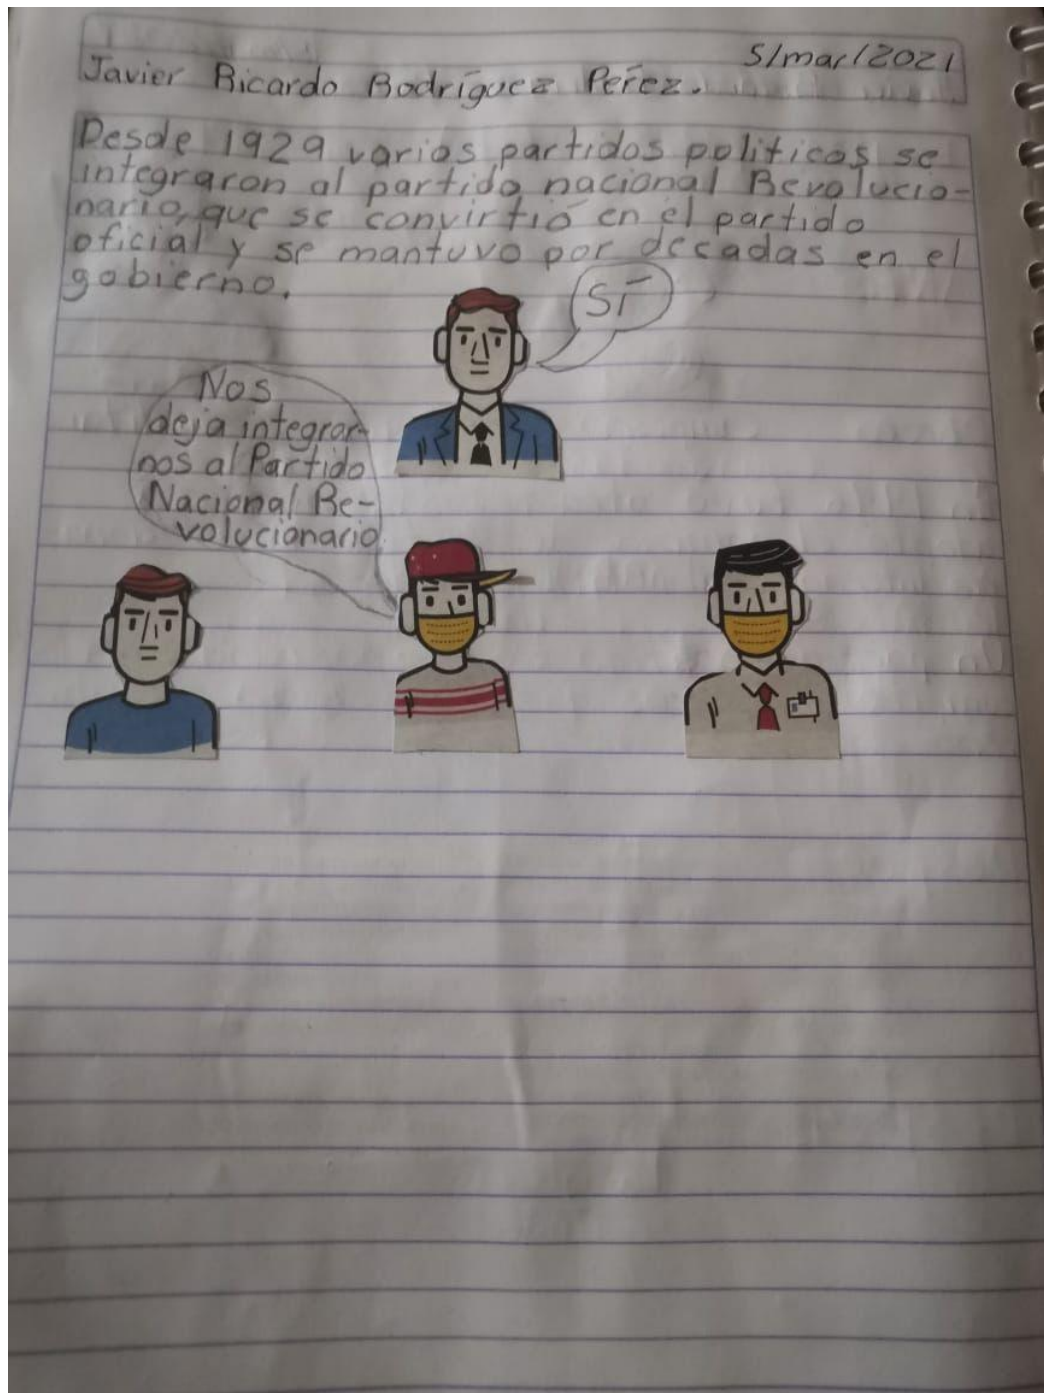 5/mar/2021
Javier Ricardo Rodríguez Peréz.
Desde 1929 varios partidos politicos se
integraron al partido nacional Revolucio-
nario, que se convirtió en el partido
oficial y se mantuvo por decadas en el
gobierno.
SÍ
Nos
deja integrar-
nos al Partido
Nacional Re-
volucionario